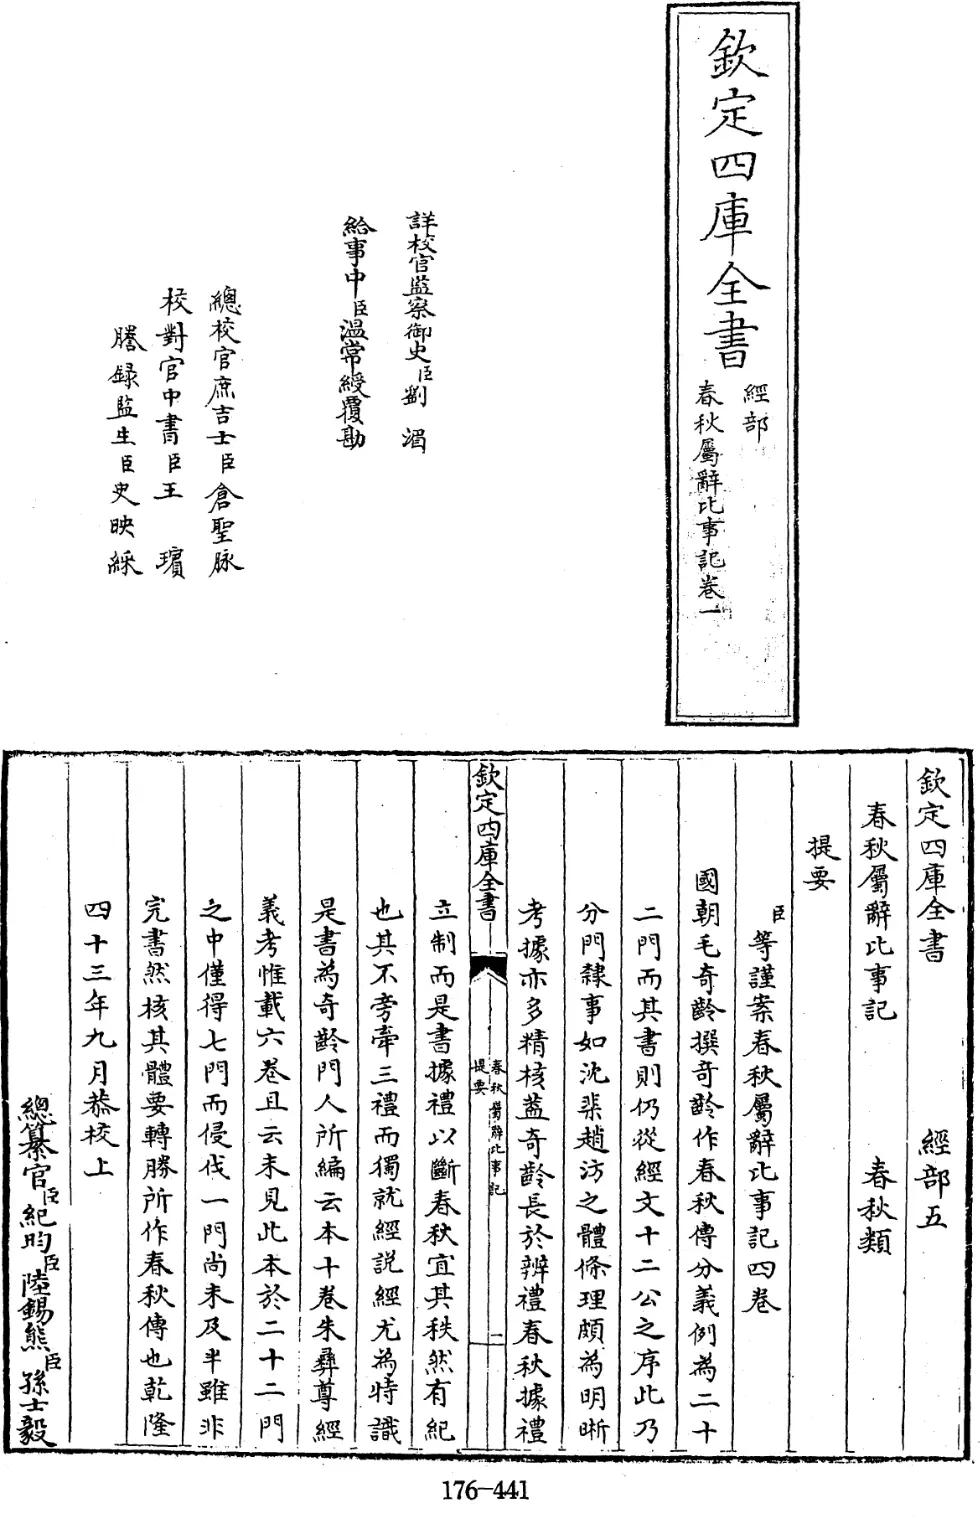 欽定四庫全書
經部
春秋屬辭比事記卷一
詳校官監察御史臣劉湄
給事中臣溫常綬覆勘
總校官庶吉士臣倉聖脉
校對官中書臣王璸
謄録監生臣史映綵
欽定四庫全書　經部五
春秋屬辭比事記　春秋類
提要
臣等謹案春秋屬辭比事記四卷
國朝毛奇齡撰奇齡作春秋傳分義例為二十
二門而其書則仍從經文十二公之序此乃
分門隸事如沈棐趙汸之體條理頗為明晰
考據亦多精核葢奇齡長於辨禮春秋據禮
欽定四庫全書
春秋屬辭比事記
提要
二
立制而是書據禮以斷春秋宜其秩然有紀
也其不旁牽三禮而獨就經說經尤為特識
是書為奇齡門人所編云本十卷朱彞尊經
義考惟載六卷且云未見此本於二十二門
之中僅得七門而侵伐一門尚未及半雖非
完書然核其體要轉勝所作春秋傳也乾隆
四十三年九月恭校上
總纂官臣紀昀臣陸錫熊臣孫士毅
176-441